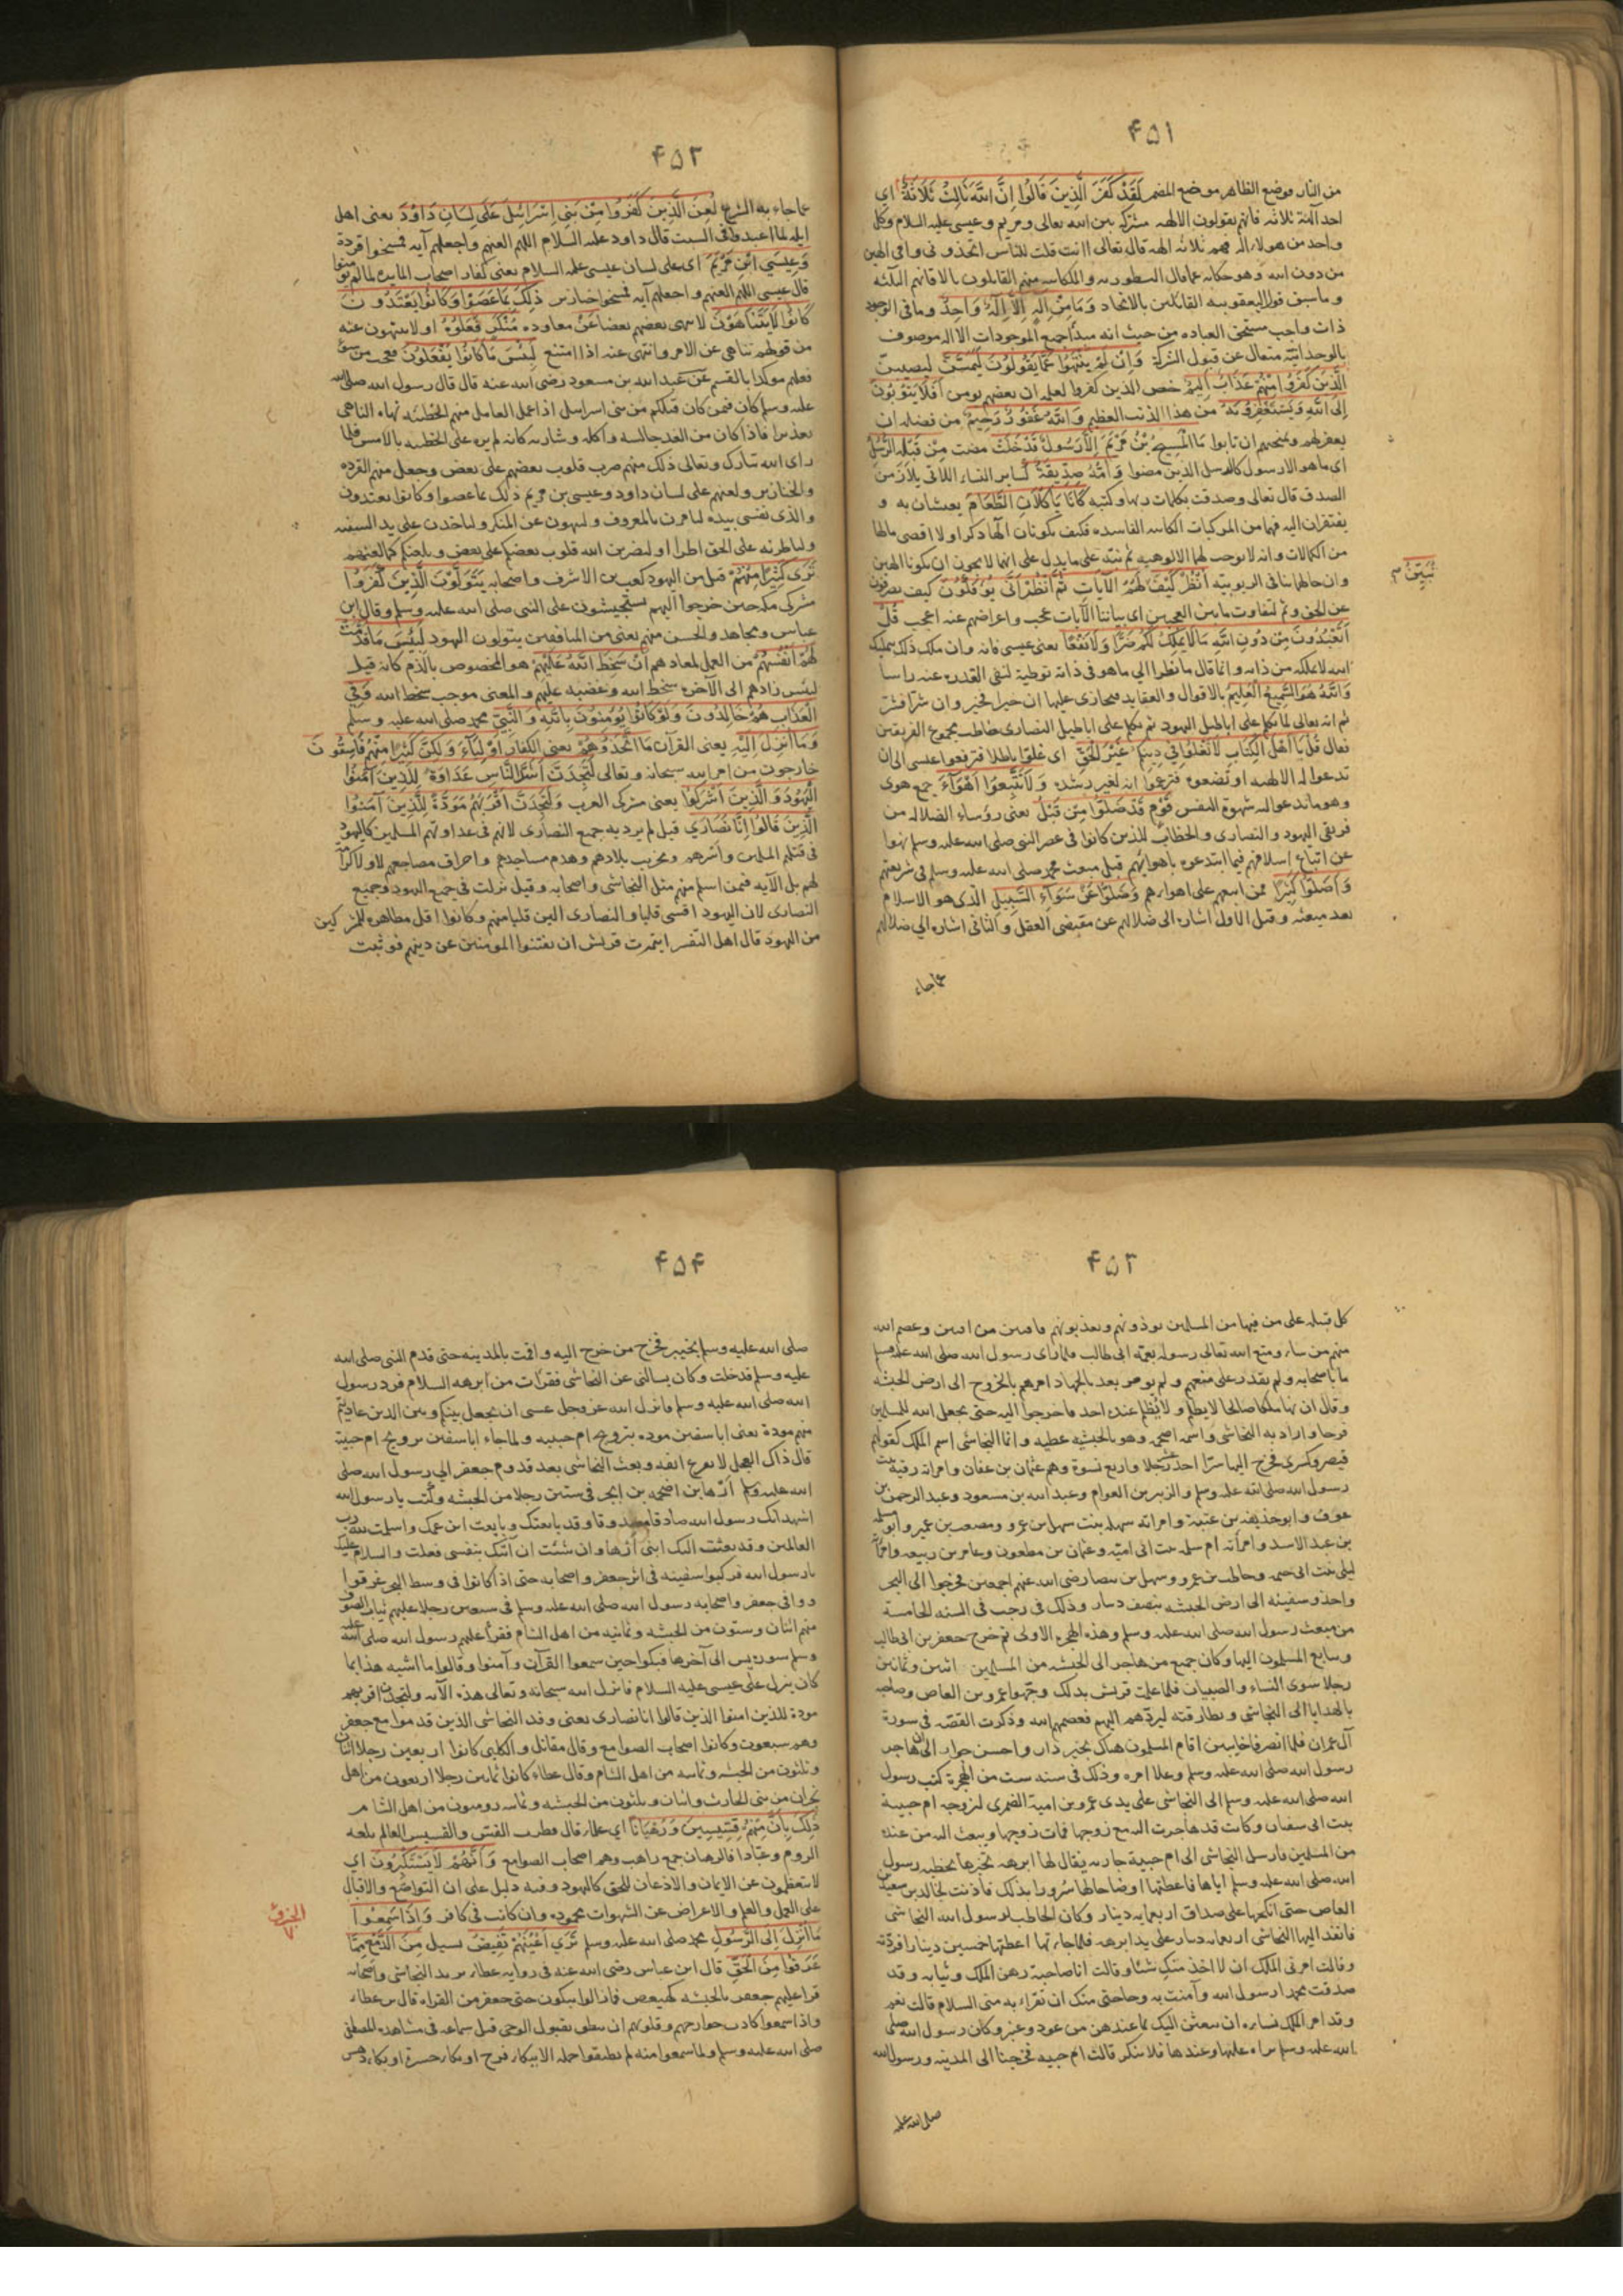 ۴۵۱
من النار فوضع الظاهر موضع المضمر لَقَدْ كَفَرَ الَّذِينَ قَالُوا إِنَّ اللَّهَ ثَالِثُ ثَلَاثَةٍ اي
احد آلهة ثلاثه فانهم يقولون الالهه مشتركه بين الله تعالى ومريم وعيسى عليه السلام وكل
واحد من هولاء اله فهم ثلاثه الهه قال تعالى اانت قلت للناس اتخذوني وامي الهين
من دون الله وهو حكايه عما قال النسطوريه والملكانيه منهم القايلون بالاقانيم الثلثه
وما سبق قول اليعقوبيه القائلين بالاتحاد وَمَا مِنْ إِلَهٍ إِلَّا إِلَهٌ وَاحِدٌ وما في الوجود
ذات واجب مستحق العباده من حيث انه مبدأ جميع الموجودات الا اله موصوف
بالوحدانيّة متعال عن قبول الشركة وَإِنْ لَمْ يَنْتَهُوا عَمَّا يَقُولُونَ لَيَمَسَّنَّ ليصيبن
الَّذِينَ كَفَرُوا مِنْهُمْ عَذَابٌ أَلِيمٌ خص الذين كفروا لعلمه ان بعضهم يومن أَفَلَا يَتُوبُونَ
إِلَى اللَّهِ وَيَسْتَغْفِرُونَهُ من هذا الذنب العظيم وَاللَّهُ غَفُورٌ رَحِيمٌ من فضله ان
يغفر لهم ويمنحهم ان تابوا مَا الْمَسِيحُ بْنُ مَرْيَمَ إِلَّا رَسُولٌ قَدْ خَلَتْ مضت مِنْ قَبْلِهِ الرُّسُلُ
اي ما هو الا رسول كالرسل الذين مضوا وَأُمُّهُ صِدِّيقَةٌ كساير النساء اللاتي يلازمن
الصدق قال تعالى وصدقت بكلمات ربها وكتبه كَانَا يَأْكُلَانِ الطَّعَامَ يعيشان به و
يفتقران اليه فهما من المركبات الكاينه الفاسده فكيف يكونان الها ذكر اولا اقصى مالهما
من الكمالات وانه لا يوجب لهما الالوهيه ثم نبّه على ما يدل على انهما لا يجوز ان يكونا الهين
وان حالهما ينافي الربوبيّه أُنْظُرْ كَيْفَ لَهُمُ الْآيَاتِ ثُمَّ انْظُرْ أَنَّى يُؤْفَكُونَ كيف يصرفون
نُبَيِّنُ ٣
عن الحق وثم لتفاوت ما بين العجبين اي بياننا الآيات عجب واعراضهم عنه اعجب قُلْ
أَتَعْبُدُونَ مِنْ دُونِ اللَّهِ مَا لَا يَمْلِكُ لَكُمْ ضَرًّا وَلَا نَفْعًا يعني عيسى فانه وان ملك ذلك بتمليك
الله لا يملكه من ذاته وانما قال ما نظرا الي ما هو في ذاته توطية لنفي القدره عنه راسا
وَاللَّهُ هُوَ السَّمِيعُ الْعَلِيمُ بالاقوال والعقايد فيجازي عليها ان خيرا فخير وان شرا فشر
ثم انه تعالى لما تكلم على اباطيل اليهود ثم تكلم على اباطيل النصارى خاطب مجموع الفريقين
فقال قُلْ يَا أَهْلَ الْكِتَابِ لَا تَغْلُوا فِي دِينِكُمْ غَيْرَ الْحَقِّ اي غلوا باطلا فترفعوا عيسى الى ان
تدعوا له الالهيه او تضعوه فتزعموا انه لغير رشده وَلَا تَتَّبِعُوا أَهْوَاءَ جمع هوى
وهو ما تدعو اليه شهوة النفس قَوْمٍ قَدْ ضَلُّوا مِنْ قَبْلُ يعني رؤساء الضلاله من
فريقي اليهود والنصارى والخطاب للذين كانوا في عصر النبي صلى الله عليه وسلم نهوا
عن اتباع اسلافهم فيما ابتدعوه باهوائهم قبل مبعث محمد صلى الله عليه وسلم في شريعتهم
وَأَضَلُّوا كَثِيرًا ممن اتبعهم على اهوائهم وَضَلُّوا عَنْ سَوَاءِ السَّبِيلِ الذي هو الاسلام
بعد مبعثه وقيل الاول اشاره الى ضلالهم عن مقتضى العقل والثاني اشاره الي ضلالهم
عما جاء
۴۵۲
عما جاء به الشرع لُعِنَ الَّذِينَ كَفَرُوا مِنْ بَنِي إِسْرَائِيلَ عَلَى لِسَانِ دَاوُدَ يعني اهل
ايله لما اعتدوا في السبت قال داود عليه السلام اللهم العنهم واجعلهم آيه فمسخوا قردة
وَعِيسَى ابْنِ مَرْيَمَ اي على لسان عيسى عليه السلام يعني كفار اصحاب المايده لما لم يومنوا
قال عيسى اللهم العنهم واجعلهم آيه فمسخوا خنازير ذَلِكَ بِمَا عَصَوْا وَكَانُوا يَعْتَدُونَ
كَانُوا لَا يَتَنَاهَوْنَ لا ينهى بعضهم بعضا عَنْ معاوده مُنْكَرٍ فَعَلُوهُ او لا ينتهون عنه
من قولهم تناهى عن الامر وانتهى عنه اذا امتنع لَبِئْسَ مَا كَانُوا يَفْعَلُونَ تعجب من سوء
فعلهم موكدا بالقسم عن عبد الله بن مسعود رضى الله عنه قال قال رسول الله صلى الله
عليه وسلم كان فمن كان قبلكم من بني اسراييل اذا عمل العامل منهم الخطيئه نهاه الناهي
تعذيرا فاذا كان من الغد جالسه واكله وشاربه كانه لم يره على الخطيه بالامس فلما
راى الله تبارك وتعالى ذلك منهم ضرب قلوب بعضهم على بعض وجعل منهم القرده
والخنازير ولعنهم على لسان داود وعيسى بن مريم ذلك بما عصوا وكانوا يعتدون
والذي نفسي بيده لتامرن بالمعروف ولتنهون عن المنكر ولتاخذن على يد السفيه
ولتاطرنه على الحق اطرا او ليضربن الله قلوب بعضكم على بعض ويلعنكم كما لعنهم
تَرَى كَثِيرًا مِنْهُمْ قيل من اليهود كعب بن الاشرف واصحابه يَتَوَلَّوْنَ الَّذِينَ كَفَرُوا
مشركي مكه حين خرجوا اليهم يستجيشون على النبي صلى الله عليه وسلم وقال ابن
عباس ومجاهد والحسن منهم يعني من المنافقين يتولون اليهود لَبِئْسَ مَا قَدَّمَتْ
لَهُمْ أَنْفُسُهُمْ من العمل لمعادهم أَنْ سَخِطَ اللَّهُ عَلَيْهِمْ هو المخصوص بالذم كانه قيل
لبئس زادهم الى الآخره سخط الله وغضبه عليهم والمعنى موجب سخط الله وَفِي
الْعَذَابِ هُمْ خَالِدُونَ وَلَوْ كَانُوا يُؤْمِنُونَ بِاللَّهِ وَالنَّبِيِّ محمد صلى الله عليه وسلم
وَمَا أُنْزِلَ إِلَيْهِ يعني القرآن مَا اتَّخَذُوهُمْ يعني الكفار أَوْلِيَاءَ وَلَكِنَّ كَثِيرًا مِنْهُمْ فَاسِقُونَ
خارجون من امر الله سبحانه وتعالى لَتَجِدَنَّ أَشَدَّ النَّاسِ عَدَاوَةً لِلَّذِينَ آمَنُوا
الْيَهُودَ وَالَّذِينَ أَشْرَكُوا يعني مشركي العرب وَلَتَجِدَنَّ أَقْرَبَهُمْ مَوَدَّةً لِلَّذِينَ آمَنُوا
الَّذِينَ قَالُوا إِنَّا نَصَارَى قيل لم يرد به جميع النصارى لانهم في عداوتهم المسلمين كاليهود
في قتلهم المسلمين واسرهم وتخريب بلادهم وهدم مساجدهم واحراق مصاحفهم لا ولا كرامة
لهم بل الآيه فيمن اسلم منهم مثل النجاشي واصحابه وقيل نزلت في جميع اليهود وجميع
النصارى لان اليهود اقسى قلبا والنصارى الين قلبا منهم وكانوا اقل مظاهره للمشركين
من اليهود قال اهل التفسير ايتمرت قريش ان يفتنوا المومنين عن دينهم فوثبت
۴۵۳
كل قبيله على من فيها من المسلمين يوذونهم ويعذبونهم فافتتن من افتتن وعصم الله
منهم من شاء ومنع الله تعالى رسوله بعمه ابي طالب فلما راى رسول الله صلى الله عليه وسلم
ما باصحابه ولم يقدر على منعهم ولم يومر بعد بالجهاد امرهم بالخروج الى ارض الحبشه
وقال ان بها ملكا صالحا لا يظلم ولا يُظلم عنده احد فاخرجوا اليه حتى يجعل الله للمسلمين
فرجا واراد به النجاشي واسمه اصحمه وهو بالحبشيه عطيه وانما النجاشي اسم الملك كقولهم
قيصر وكسرى فخرج اليها سرّا احد عشر رجلا واربع نسوة وهم عثمان بن عفان وامراته رقيه بنت
رسول الله صلى الله عليه وسلم والزبير بن العوام وعبد الله بن مسعود وعبد الرحمن بن
عوف وابو حذيفه بن عتبة وامراته سهله بنت سهيل بن عمرو ومصعب بن عمير وابو سلمه
بن عبد الاسد وامراته ام سلمه بنت ابي اميّه وعثمان بن مظعون وعامر بن ربيعه وامراته
ليلى بنت ابي حثمه وحاطب بن عمرو وسهيل بن بيضا رضى الله عنهم اجمعين فخرجوا الى البحر
واخذوا سفينه الى ارض الحبشه بنصف دينار وذلك في رجب في السنه الخامسة
من مبعث رسول الله صلى الله عليه وسلم وهذه الهجره الاولى ثم خرج جعفر بن ابي طالب
وتتابع المسلمون اليها وكان جميع من هاجر الى الحبشه من المسلمين اثنين وثمانين
رجلا سوى النساء والصبيان فلما علمت قريش بذلك وجّهوا عمرو بن العاص وصاحبه
بالهدايا الى النجاشي وبطارقته ليردهم اليهم فعصمهم الله وذكرت القصّة في سورة
آل عمران فلما انصرفا خايبين اقام المسلمون هناك بخير دار واحسن جوار الى ان هاجر
رسول الله صلى الله عليه وسلم وعلا امره وذلك في سنه ست من الهجرة كتب رسول
الله صلى الله عليه وسلم الى النجاشي على يدي عمرو بن امية الضمرى ليزوجه ام حبيبة
بنت ابي سفيان وكانت قد هاجرت اليه مع زوجها فمات زوجها ويبعث اليه من عنده
من المسلمين فارسل النجاشي الى ام حبيبة جاريه يقال لها ابرهه تخبرها بخطبه رسول
الله صلى الله عليه وسلم اياها فاعطتها اوضاحا لها سُرورا بذلك فاذنت لخالد بن سعيد بن
العاص حتى انكحها على صداق اربعمايه دينار وكان الخاطب لرسول الله النجاشي
فانفذ اليها النجاشي اربعمايه دينار على يد ابرهه فلما جاءتها اعطتها خمسين دينارا فردّته
وقالت امرني الملك ان لا اخذ منكِ شيئا وقالت انا صاحبة دهن الملك وثيابه وقد
صدقت محمدا رسول الله وآمنت به وحاجتي منك ان تقراء به منى السلام قالت نعم
وقد امر الملك نساءه ان يبعثن اليك بما عندهن من عود وعنبر وكان رسول الله صلى
الله عليه وسلم يراه عليها وعندها فلا ينكر قالت ام حبيبه فخرجنا الى المدينه ورسول الله
صلى الله عليه
۴۵۴
صلى الله عليه وسلم بخيبر فخرج من خرج اليه واقمت بالمدينه حتى قدم النبي صلى الله
عليه وسلم فدخلت وكان يسالني عن النجاشي فقرات من ابرهه السلام فرد رسول
الله صلى الله عليه وسلم فانزل الله عز وجل عسى ان يجعل بينكم وبين الذين عاديتم
منهم مودة يعني ابا سفين موده بتزويج ام حبيبه ولما جاء ابا سفين تزويج ام حبيبة
قال ذاك الفحل لا يقرع انفه وبعث النجاشي بعد قدوم جعفر الي رسول الله صلى
الله عليه وسلم ازها بن اصحمه بن ابجر في ستين رجلا من الحبشه وكتب يا رسول الله
اشهد انك رسول الله صادقا مصدوقا وقد بايعتك وبايعت ابن عمك واسلمت لله رب
العالمين وقد بعثت اليك ابني ازها وان شئت ان آتيك بنفسي فعلت والسلام عليك
يا رسول الله فركبوا سفينه في اثر جعفر واصحابه حتى اذا كانوا في وسط البحر غرقوا
ووافى جعفر واصحابه رسول الله صلى الله عليه وسلم في سبعين رجلا عليهم ثياب الصوف
منهم اثنان وستون من الحبشه وثمانيه من اهل الشام فقرأ عليهم رسول الله صلى الله عليه
وسلم سوره يس الى آخرها فبكوا حين سمعوا القرآن وآمنوا وقالوا ما اشبه هذا بما
كان ينزل على عيسى عليه السلام فانزل الله سبحانه وتعالى هذه الآيه ولتجدن اقربهم
مودة للذين امنوا الذين قالوا انا نصارى يعني وفد النجاشي الذين قدموا مع جعفر
وهم سبعون وكانوا اصحاب الصوامع وقال مقاتل والكلبي كانوا اربعين رجلا اثنان
وثلثون من الحبشه وثمانيه من اهل الشام وقال عطاء كانوا ثمانين رجلا اربعون من اهل
نجران من بني الحارث واثنان وثلثون من الحبشه وثمانيه روميون من اهل الشام
ذَلِكَ بِأَنَّ مِنْهُمْ قِسِّيسِينَ وَرُهْبَانًا اي علماء قال قطرب القس والقسيس العالم بلغه
الروم وعبّادا فالرهبان جمع راهب وهم اصحاب الصوامع وَأَنَّهُمْ لَا يَسْتَكْبِرُونَ اي
لا يتعظمون عن الايمان والاذعان للحق كاليهود وفيه دليل على ان التواضع والاقبال
على العمل والعلم والاعراض عن الشهوات محموده وان كانت في كافر وَإِذَا سَمِعُوا
الجزو ٧
مَا أُنْزِلَ إِلَى الرَّسُولِ محمد صلى الله عليه وسلم تَرَى أَعْيُنَهُمْ تَفِيضُ تسيل مِنَ الدَّمْعِ مِمَّا
عَرَفُوا مِنَ الْحَقِّ قال ابن عباس رضى الله عنه في روايه عطاء يريد النجاشي واصحابه
قرا عليهم جعفر بالحبشه كهيعص فما زالوا يبكون حتى جعفر من القراءه قال بن عطاء
واذا سمعوا كادت جوارحهم وقلوبهم ان تنطق بقبول الوحي قبل سماعه في مشاهده المصطفى
صلى الله عليه وسلم ولما سمعوا منه لم يطيقوا حمله الا ببكاء فرح او بكاء حسره او بكاء دهش